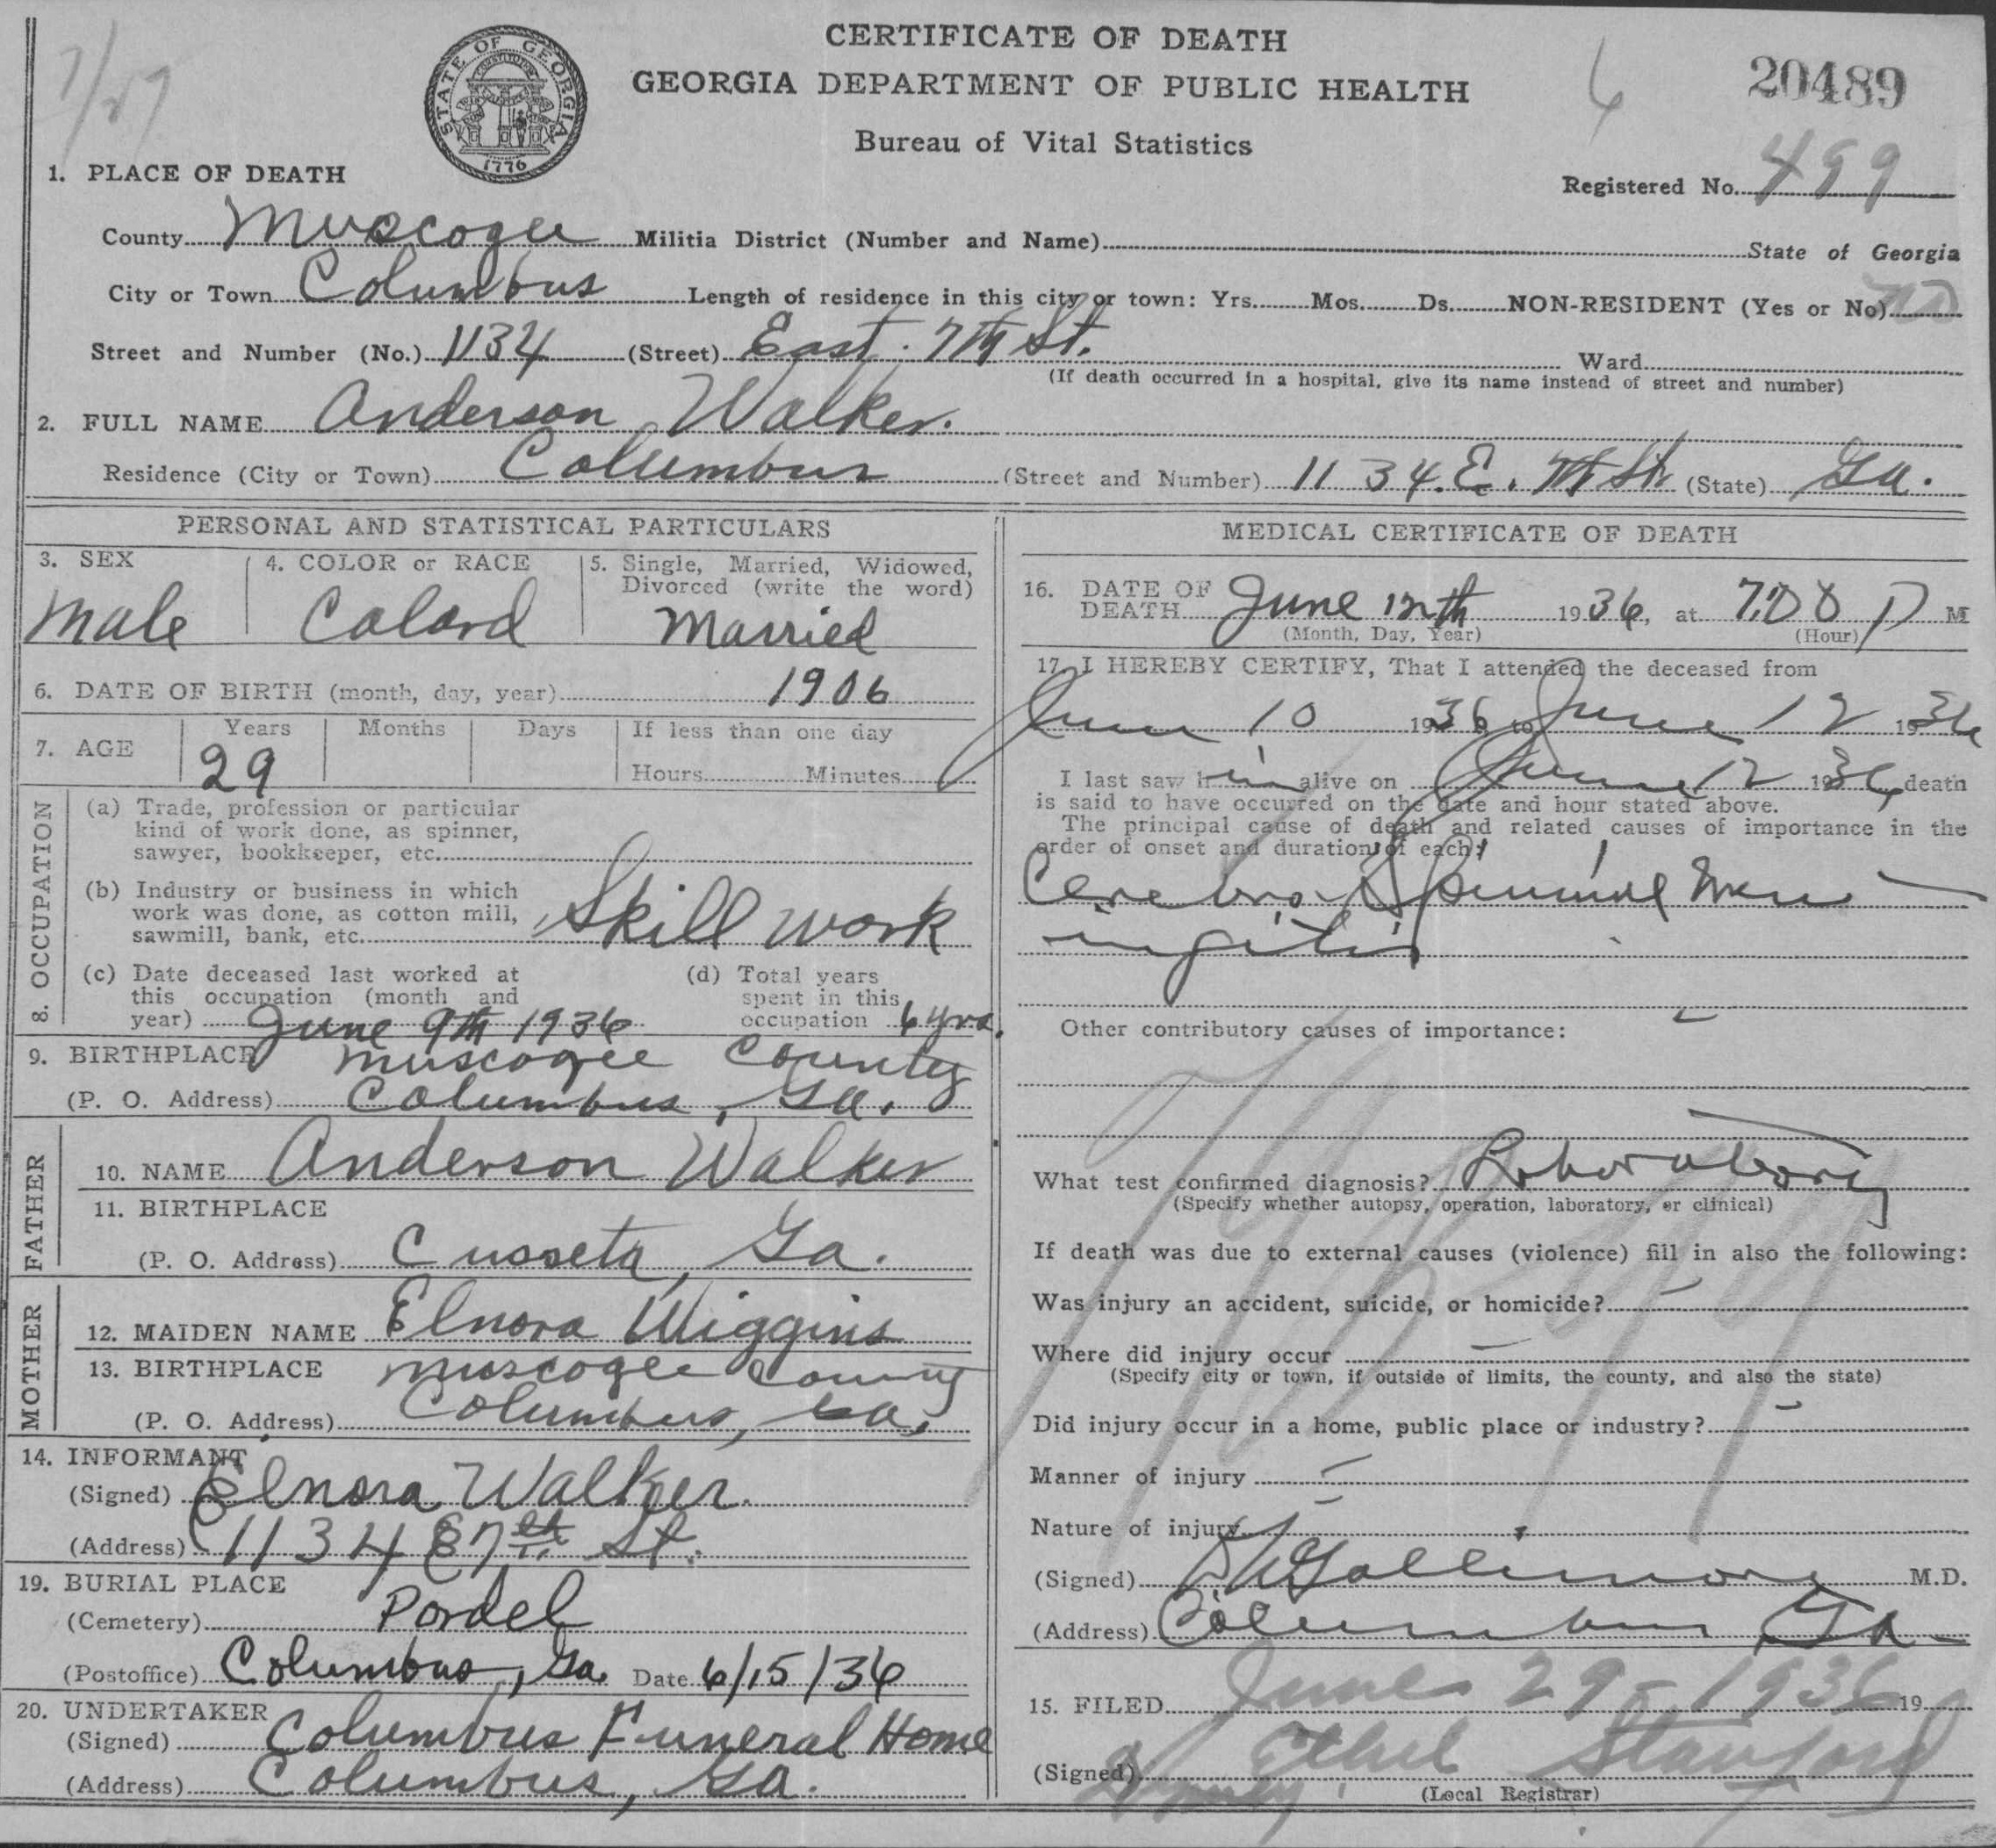 7/27
CERTIFICATE OF DEATH
GEORGIA DEPARTMENT OF PUBLIC HEALTH
Bureau of Vital Statistics
STATE OF GEORGIA
CONSTITUTION
1776
6
20489
Registered No. 499
1. PLACE OF DEATH
County Muscogee Militia District (Number and Name) State of Georgia
City or Town Columbus Length of residence in this city or town: Yrs. Mos. Ds. NON-RESIDENT (Yes or No) no
Street and Number (No.) 1134 (Street) East. 7th St. Ward
(If death occurred in a hospital, give its name instead of street and number)
2. FULL NAME Anderson Walker.
Residence (City or Town) Columbus (Street and Number) 1134. E. 7th St. (State) Ga.
PERSONAL AND STATISTICAL PARTICULARS
3. SEX Male
4. COLOR or RACE Colord
5. Single, Married, Widowed, Divorced (write the word) Married
6. DATE OF BIRTH (month, day, year) 1906
7. AGE Years 29 Months Days If less than one day
Hours Minutes
8. OCCUPATION
(a) Trade, profession or particular
kind of work done, as spinner,
sawyer, bookkeeper, etc.
(b) Industry or business in which
work was done, as cotton mill,
sawmill, bank, etc. Skill work
(c) Date deceased last worked at
this occupation (month and
year) June 9th 1936
(d) Total years
spent in this
occupation 6 yrs.
9. BIRTHPLACE Muscogee County
(P. O. Address) Columbus, Ga.
FATHER
10. NAME Anderson Walker
11. BIRTHPLACE
(P. O. Address) Cusseta, Ga.
MOTHER
12. MAIDEN NAME Elnora Wiggins
13. BIRTHPLACE Muscogee County
(P. O. Address) Columbus, Ga.
14. INFORMANT
(Signed) Elnora Walker.
(Address) 1134 E 7th St.
19. BURIAL PLACE
(Cemetery) Pordel
(Postoffice) Columbus, Ga. Date 6/15/36
20. UNDERTAKER
(Signed) Columbus Funeral Home
(Address) Columbus, Ga.
MEDICAL CERTIFICATE OF DEATH
16. DATE OF
DEATH June 12th 1936, at 7:00 P M
(Month, Day, Year) (Hour)
17. I HEREBY CERTIFY, That I attended the deceased from
June 10 1936 to June 12 1936
I last saw him alive on June 12 1936, death
is said to have occurred on the date and hour stated above.
The principal cause of death and related causes of importance in the
order of onset and duration of each:
Cerebro Spinal Men
ingitis
Other contributory causes of importance:
What test confirmed diagnosis? Laboratory
(Specify whether autopsy, operation, laboratory, or clinical)
If death was due to external causes (violence) fill in also the following:
Was injury an accident, suicide, or homicide?
Where did injury occur
(Specify city or town, if outside of limits, the county, and also the state)
Did injury occur in a home, public place or industry?
Manner of injury
Nature of injury
(Signed) Gallimore M.D.
(Address) Columbus Ga
15. FILED June 29 - 1936 19
(Signed) Ethel Stanford
(Local Registrar)